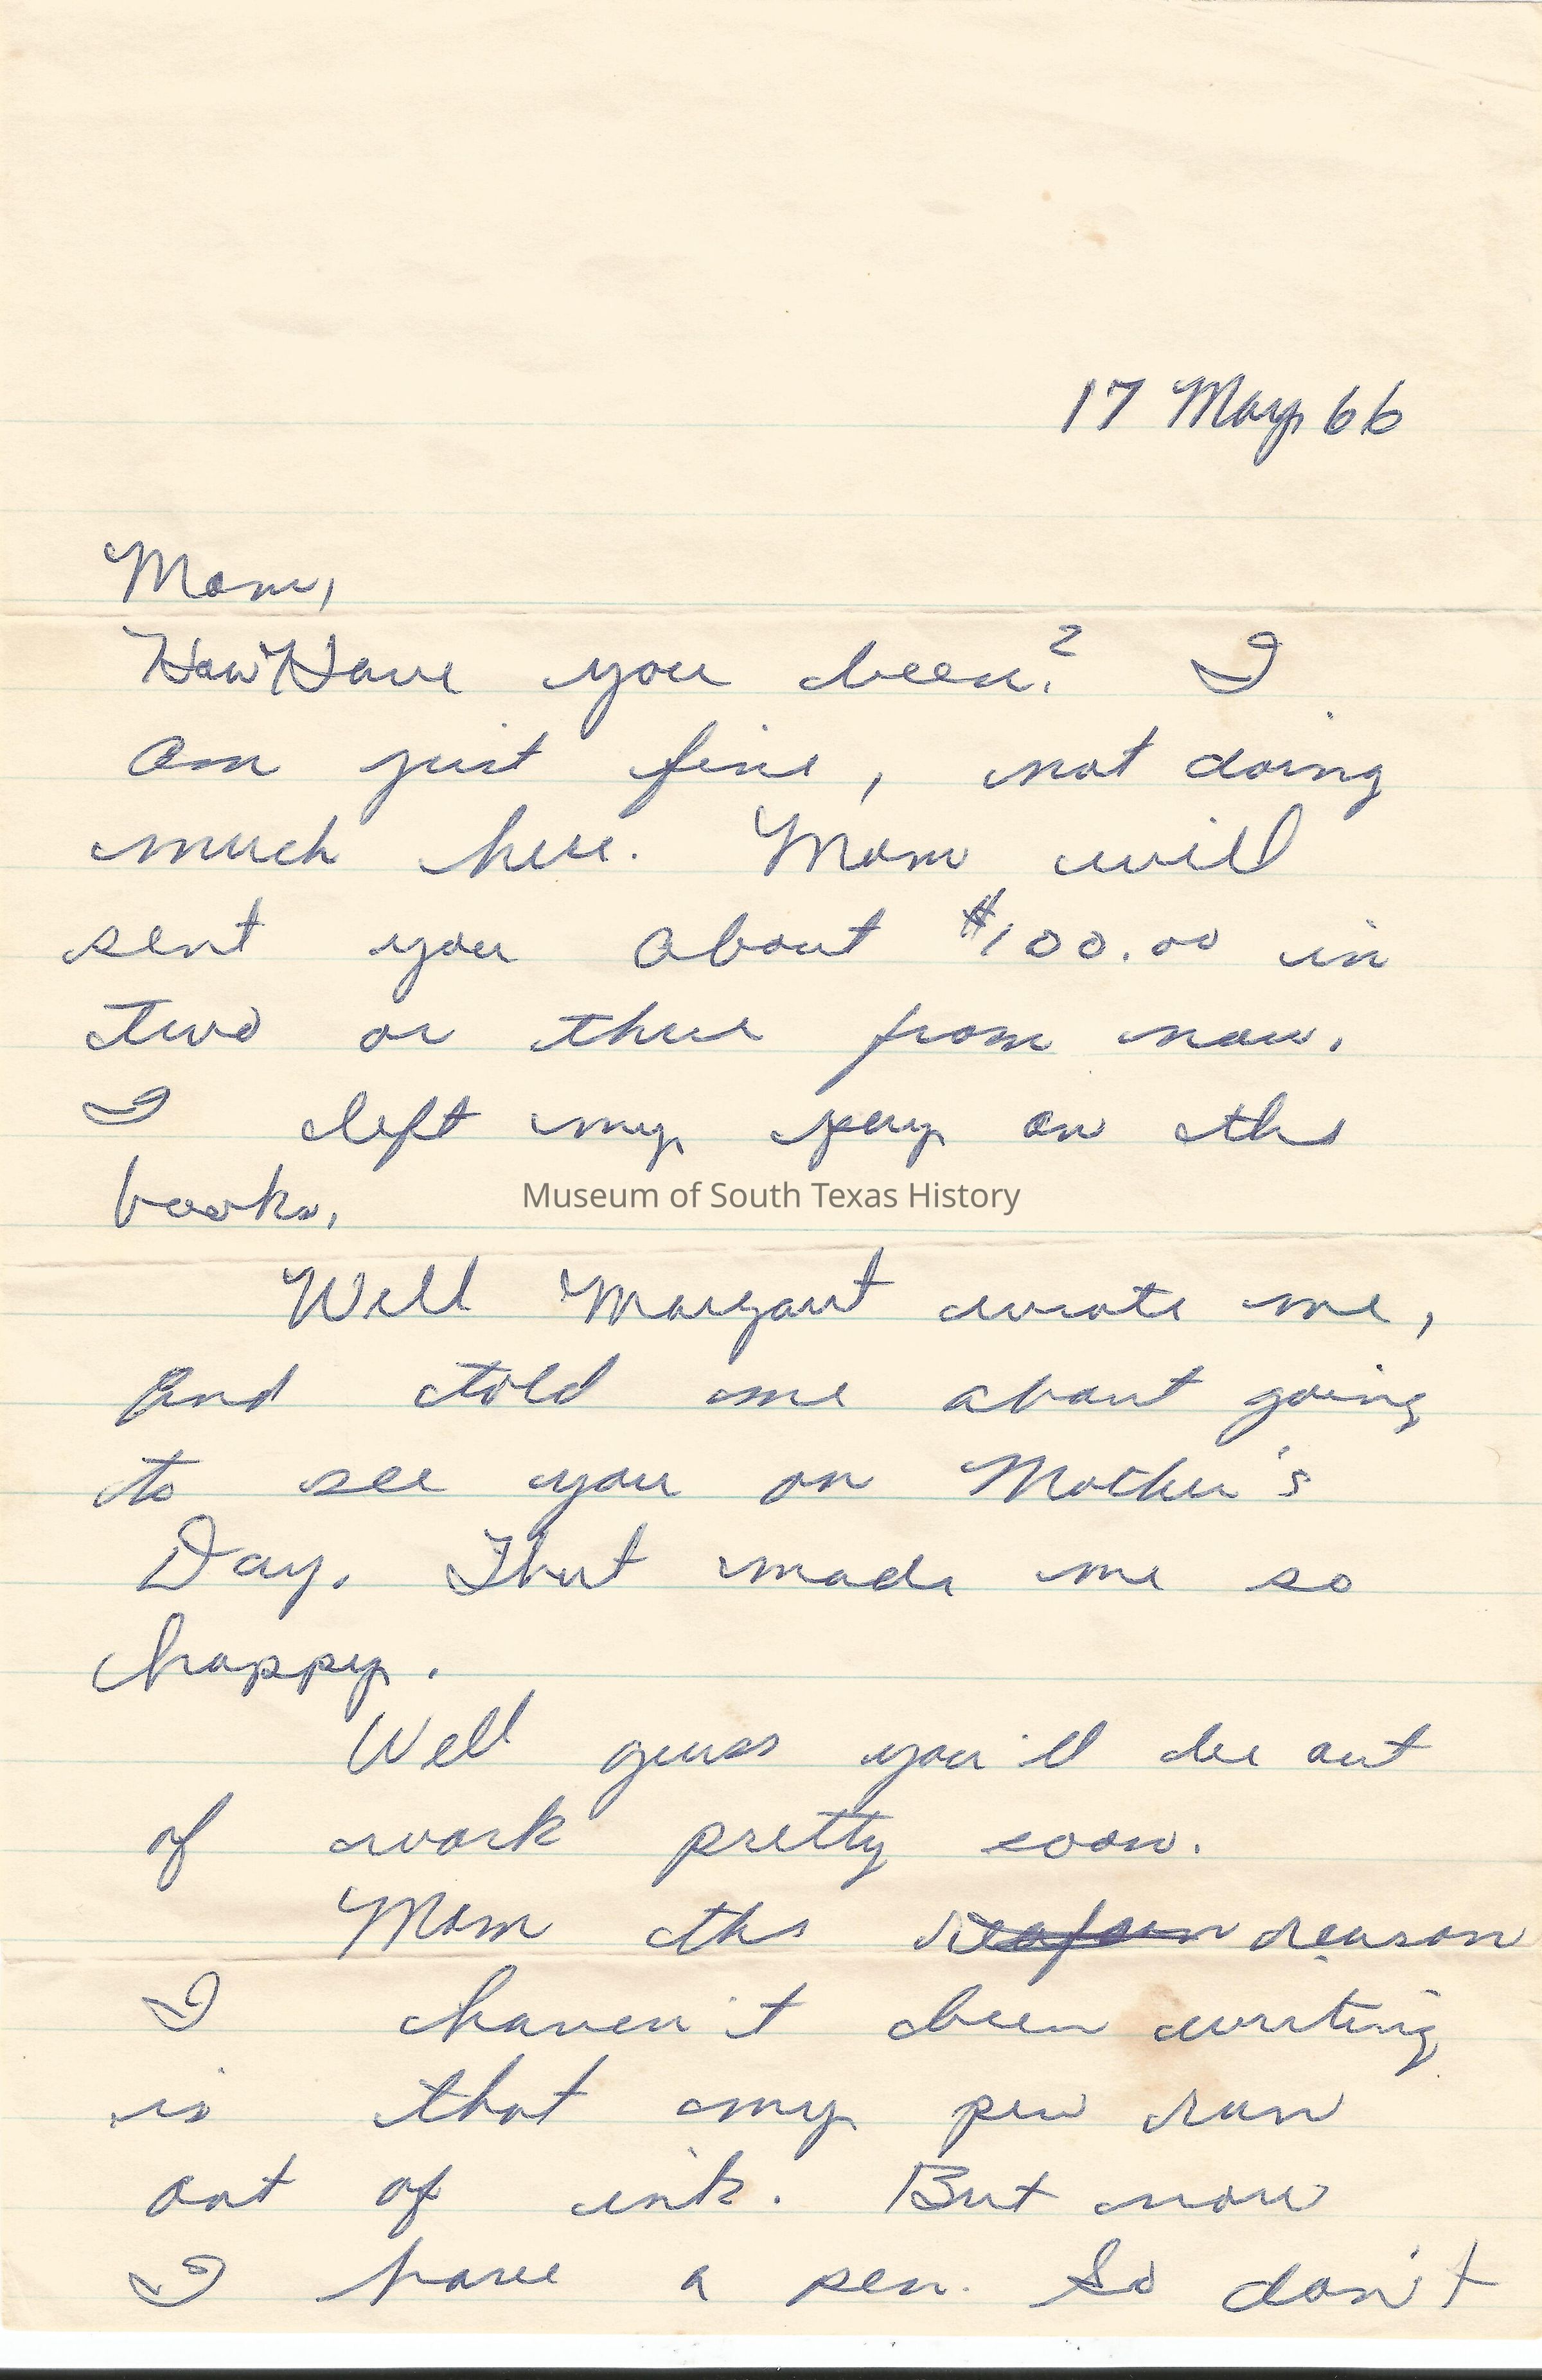 17 May 66
Mom,
How Have you been? I
am just fine, not doing
much here. Mom will
sent you about $100.00 in
two or three from now.
I left my pay on the
books.
Museum of South Texas History
Well Margaret wrote me,
and told me about going
to see you on Mother's
Day. That made me so
happy.
Well guess you'll be out
of work pretty soon.
Mom the reason
I haven't been writing
is that my pen ran
out of ink. But now
I have a pen. So don't